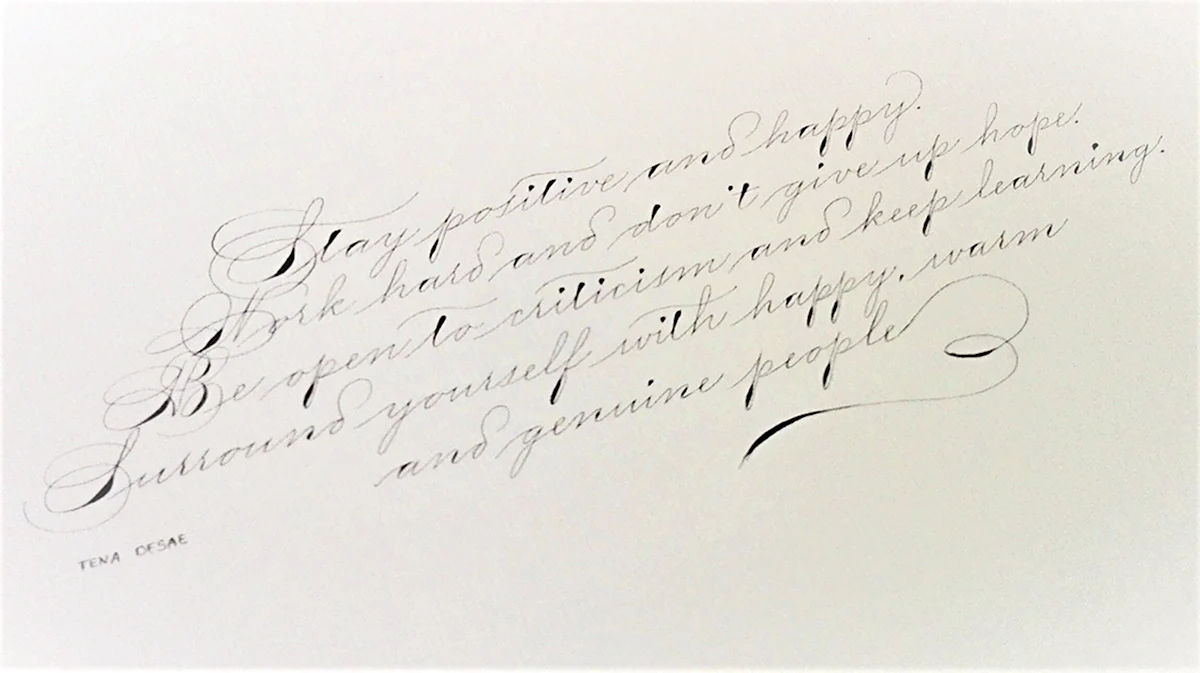 Stay positive and happy.
Work hard and don't give up hope.
Be open to criticism and keep learning.
Surround yourself with happy, warm
and genuine people
TENA DESAE